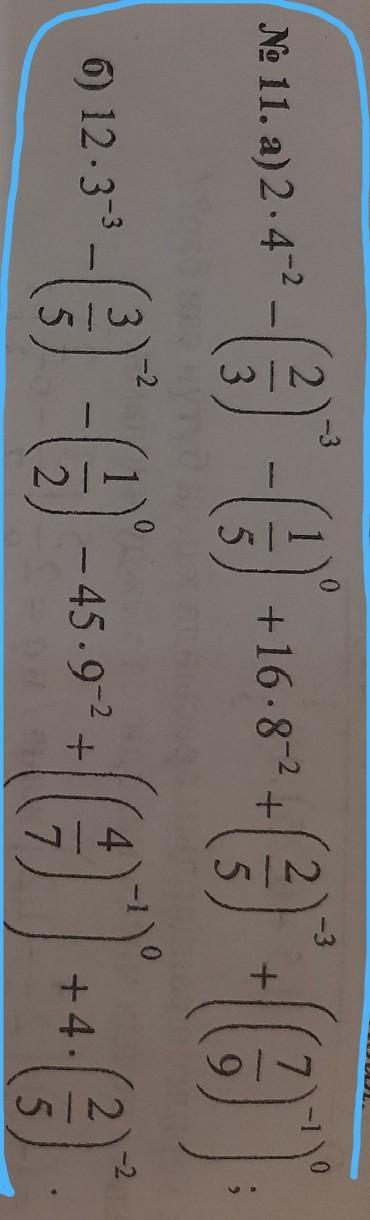 № 11. а) 2 · 4⁻² − (2/3)⁻³ − (1/5)⁰ + 16 · 8⁻² + (2/5)⁻³ + ((7/9)⁻¹)⁰ ;
б) 12 · 3⁻³ − (3/5)⁻² − (1/2)⁰ − 45 · 9⁻² + ((4/7)⁻¹)⁰ + 4 · (2/5)⁻² .